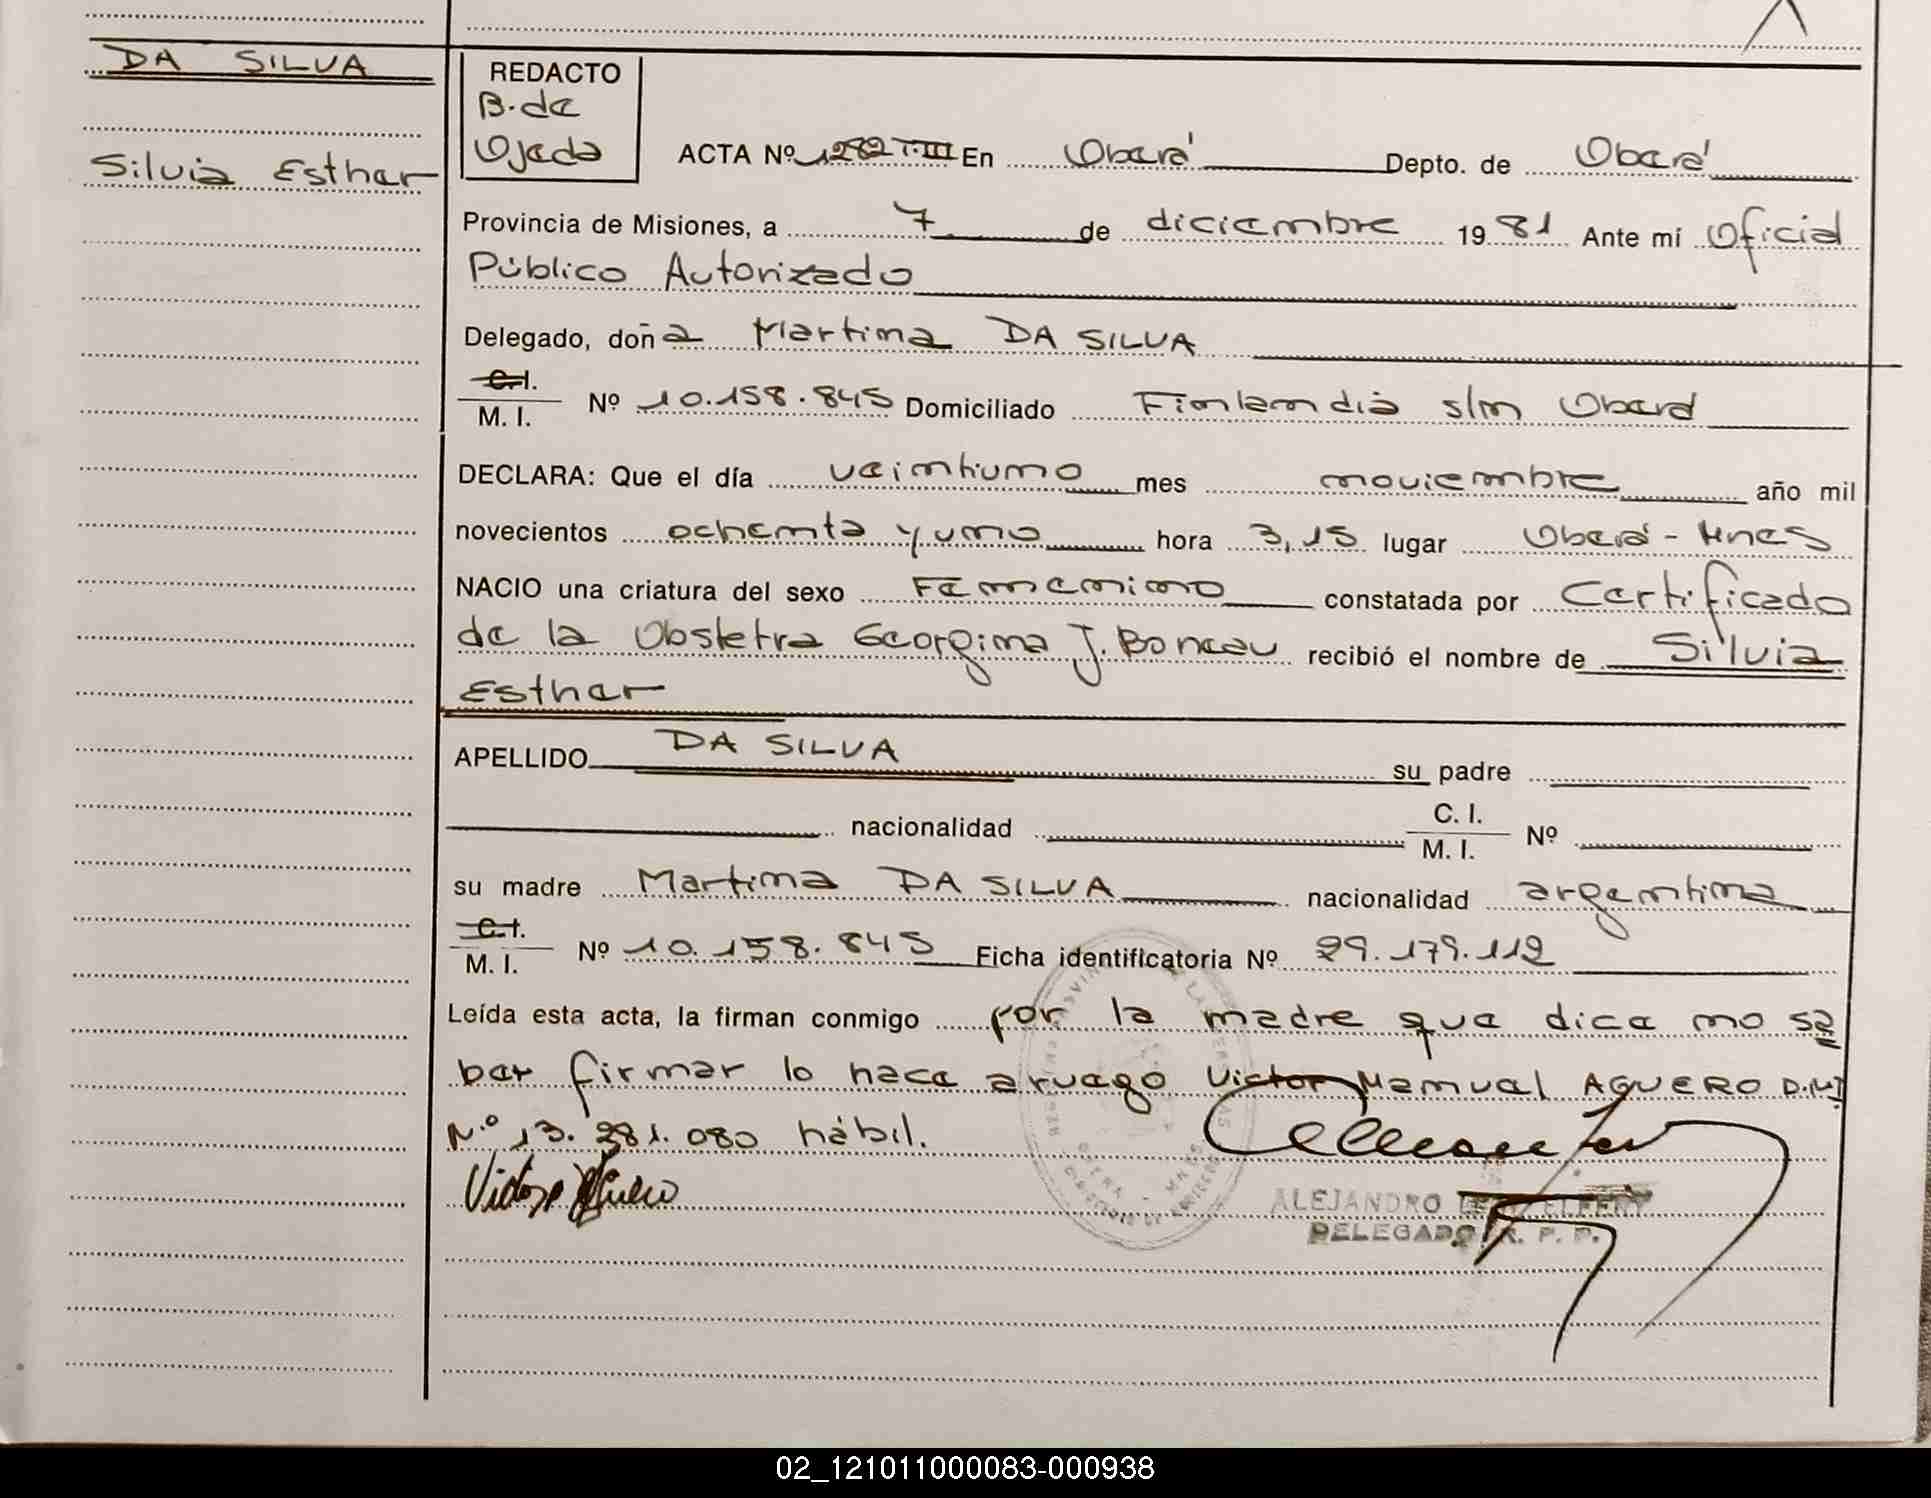 DA SILVA
Silvia Esther
REDACTO
B. de
Ojeda
ACTA Nº 1282 T.III En Oberá Depto. de Oberá
Provincia de Misiones, a 7 de diciembre 1981 Ante mí Oficial
Público Autorizado
Delegado, doña Martina DA SILVA
C.I.
M. I. Nº 10.158.845 Domiciliado Finlandia s/n Oberá
DECLARA: Que el día veintiuno mes noviembre año mil
novecientos ochenta y uno hora 3,15 lugar Oberá - Mnes
NACIO una criatura del sexo Femenino constatada por Certificado
de la Obstetra Georgina J. Boneau recibió el nombre de Silvia
Esther
APELLIDO DA SILVA su padre
nacionalidad C. I.
M. I. Nº
su madre Martina DA SILVA nacionalidad argentina
C.I.
M. I. Nº 10.158.845 Ficha identificatoria Nº 29.179.112
Leída esta acta, la firman conmigo por la madre que dice no sa
ber firmar lo hace a ruego Victor Manuel AGUERO D.M.I
N.º 13.281.080 hábil.
Victor Aguero
ALEJANDRO
DELEGADO R. P. P.
02_121011000083-000938